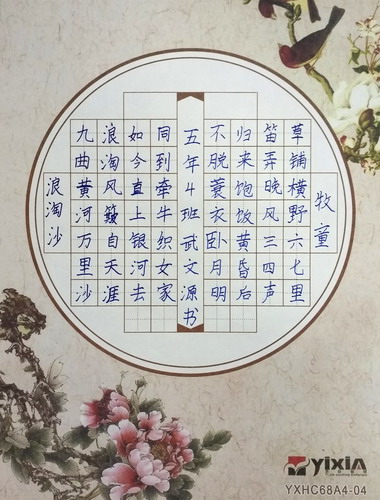 牧童
草铺横野六七里
笛弄晚风三四声
归来饱饭黄昏后
不脱蓑衣卧月明
五年4班武文源书
同到牵牛织女家
如今直上银河去
浪淘风簸自天涯
九曲黄河万里沙
浪淘沙
yixin
YXHC68A4-04